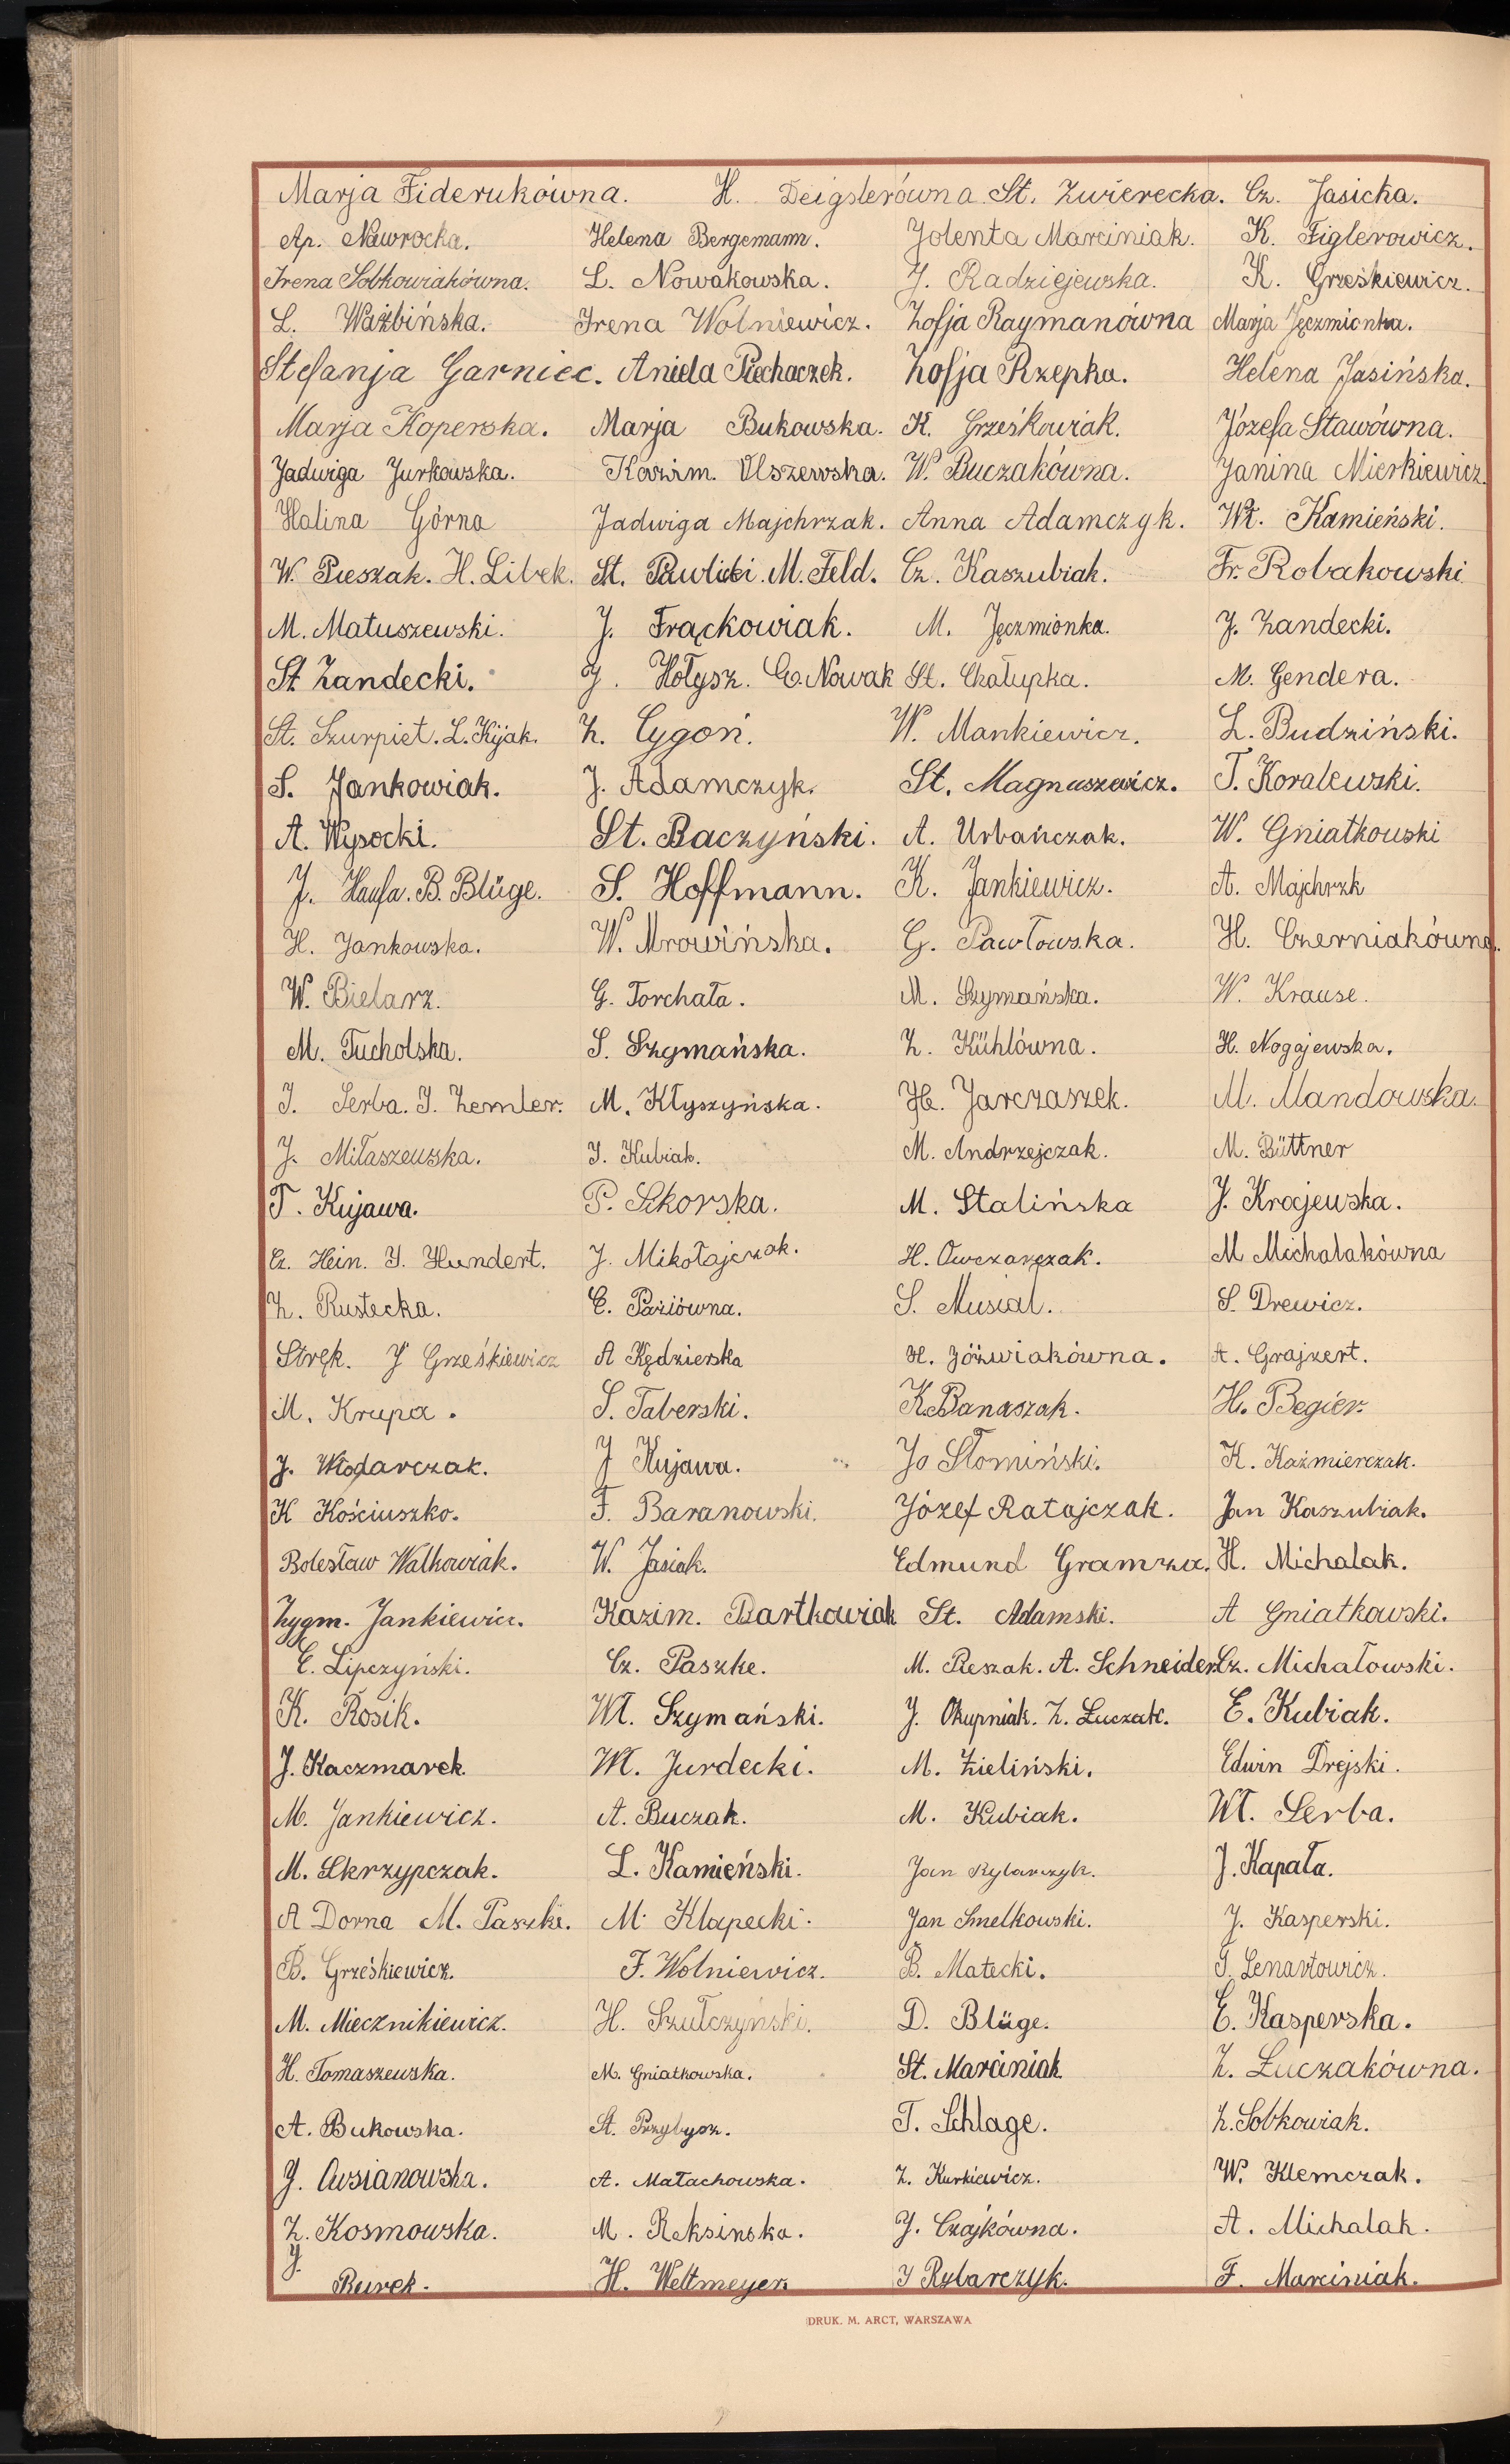 Marja Fiderukówna. H. Deigslerówna. St. Zwierecka. Cz. Jasicka.
Ap. Nawrocka. Helena Bergemann. Jolenta Marciniak. K. Figlerowicz.
Irena Sobkowiakówna. L. Nowakowska. J. Radziejewska. K. Grześkiewicz.
L. Ważbińska. Irena Wolniewicz. Zofja Raymanówna Marja Jęczmionka.
Stefanja Garniec. Aniela Piechaczek. Zofja Rzepka. Helena Jasińska.
Marja Koperska. Marja Bukowska. K. Grześkowiak. Józefa Stawówna.
Jadwiga Jurkowska. Kazim. Olszewska. W. Buczakówna. Janina Mierkiewicz.
Halina Górna Jadwiga Majchrzak. Anna Adamczyk. Wł. Kamieński.
W. Pieszak. H. Libek. St. Pawlicki. M. Feld. Cz. Kaszubiak. Fr. Robakowski
M. Matuszewski. J. Frąckowiak. M. Jęczmionka. J. Żandecki.
St. Żandecki. J. Hołysz. Cz. Nowak St. Chałupka. M. Gendera.
St. Szurpiet. L. Kijak. Z. Cygoń. W. Mankiewicz. L. Budziński.
S. Jankowiak. J. Adamczyk. St. Magnuszewicz. T. Koralewski.
A. Wysocki. St. Baczyński. A. Urbańczak. W. Gniatkowski
J. Haufa. B. Blüge. S. Hoffmann. K. Jankiewicz. A. Majchrzk
H. Jankowska. W. Mrowińska. G. Pawłowska. H. Czerniakówna.
W. Bielarz. G. Torchała. M. Szymańska. W. Krause.
M. Tucholska. S. Szymańska. Z. Kühlówna. H. Nogajewska.
I. Serba. I. Zemler. M. Kłyszyńska. H. Jarczaszek. M. Mandowska.
J. Miłaszewska. I. Kubiak. M. Andrzejczak. M. Büttner
T. Kujawa. P. Sikorska. M. Stalińska J. Krajewska.
Cz. Hein. I. Hundert. J. Mikołajczak. H. Owczarczak. M Michalakówna
Z. Rustecka. C. Paziówna. S. Musiał. S. Drewicz.
Stręk. J Grześkiewicz A Kędzierska H. Jóźwiakówna. A. Grajzert.
M. Krupa. S. Taberski. K. Banaszak. H. Begier.
J. Włodarczak. J Kujawa. Jo Słomiński. K. Kaźmierczak.
K Kościuszko. F. Baranowski. Józef Ratajczak. Jan Kaszubiak.
Bolesław Walkowiak. W. Jasiak. Edmund Gramza. H. Michalak.
Zygm. Jankiewicz. Kazim. Bartkowiak St. Adamski. A Gniatkowski.
C. Lipczyński. Cz. Paszke. M. Reszak. A. Schneider. Cz. Michałowski.
K. Rosik. Wł. Szymański. J. Okupniak. Z. Łuczak. E. Kubiak.
J. Kaczmarek. Wł. Jurdecki. M. Zieliński. Edwin Drejski.
M. Jankiewicz. A. Buczak. M. Kubiak. Wł. Serba.
M. Skrzypczak. L. Kamieński. Jan Rybarczyk. J. Kapała.
A Dorna M. Paszke. M. Klapecki. Jan Smelkowski. J. Kasperski.
B. Grześkiewicz. F. Wolniewicz. B. Matecki. T. Lenartowicz.
M. Miecznikiewicz. H. Szulczyński. D. Blüge. E. Kasperska.
H. Tomaszewska. M. Gniatkowska. St. Marciniak Z. Łuczakówna.
A. Bukowska. St. Przybysz. T. Schlage. Z. Sobkowiak.
J. Owsianowska. A. Małachowska. Z. Kurkiewicz. W. Klemczak.
Z. Kosmowska. M. Reksinska. J. Czajkówna. A. Michalak.
J. Burek. H. Weltmeyer J Rybarczyk. F. Marciniak.
DRUK. M. ARCT, WARSZAWA